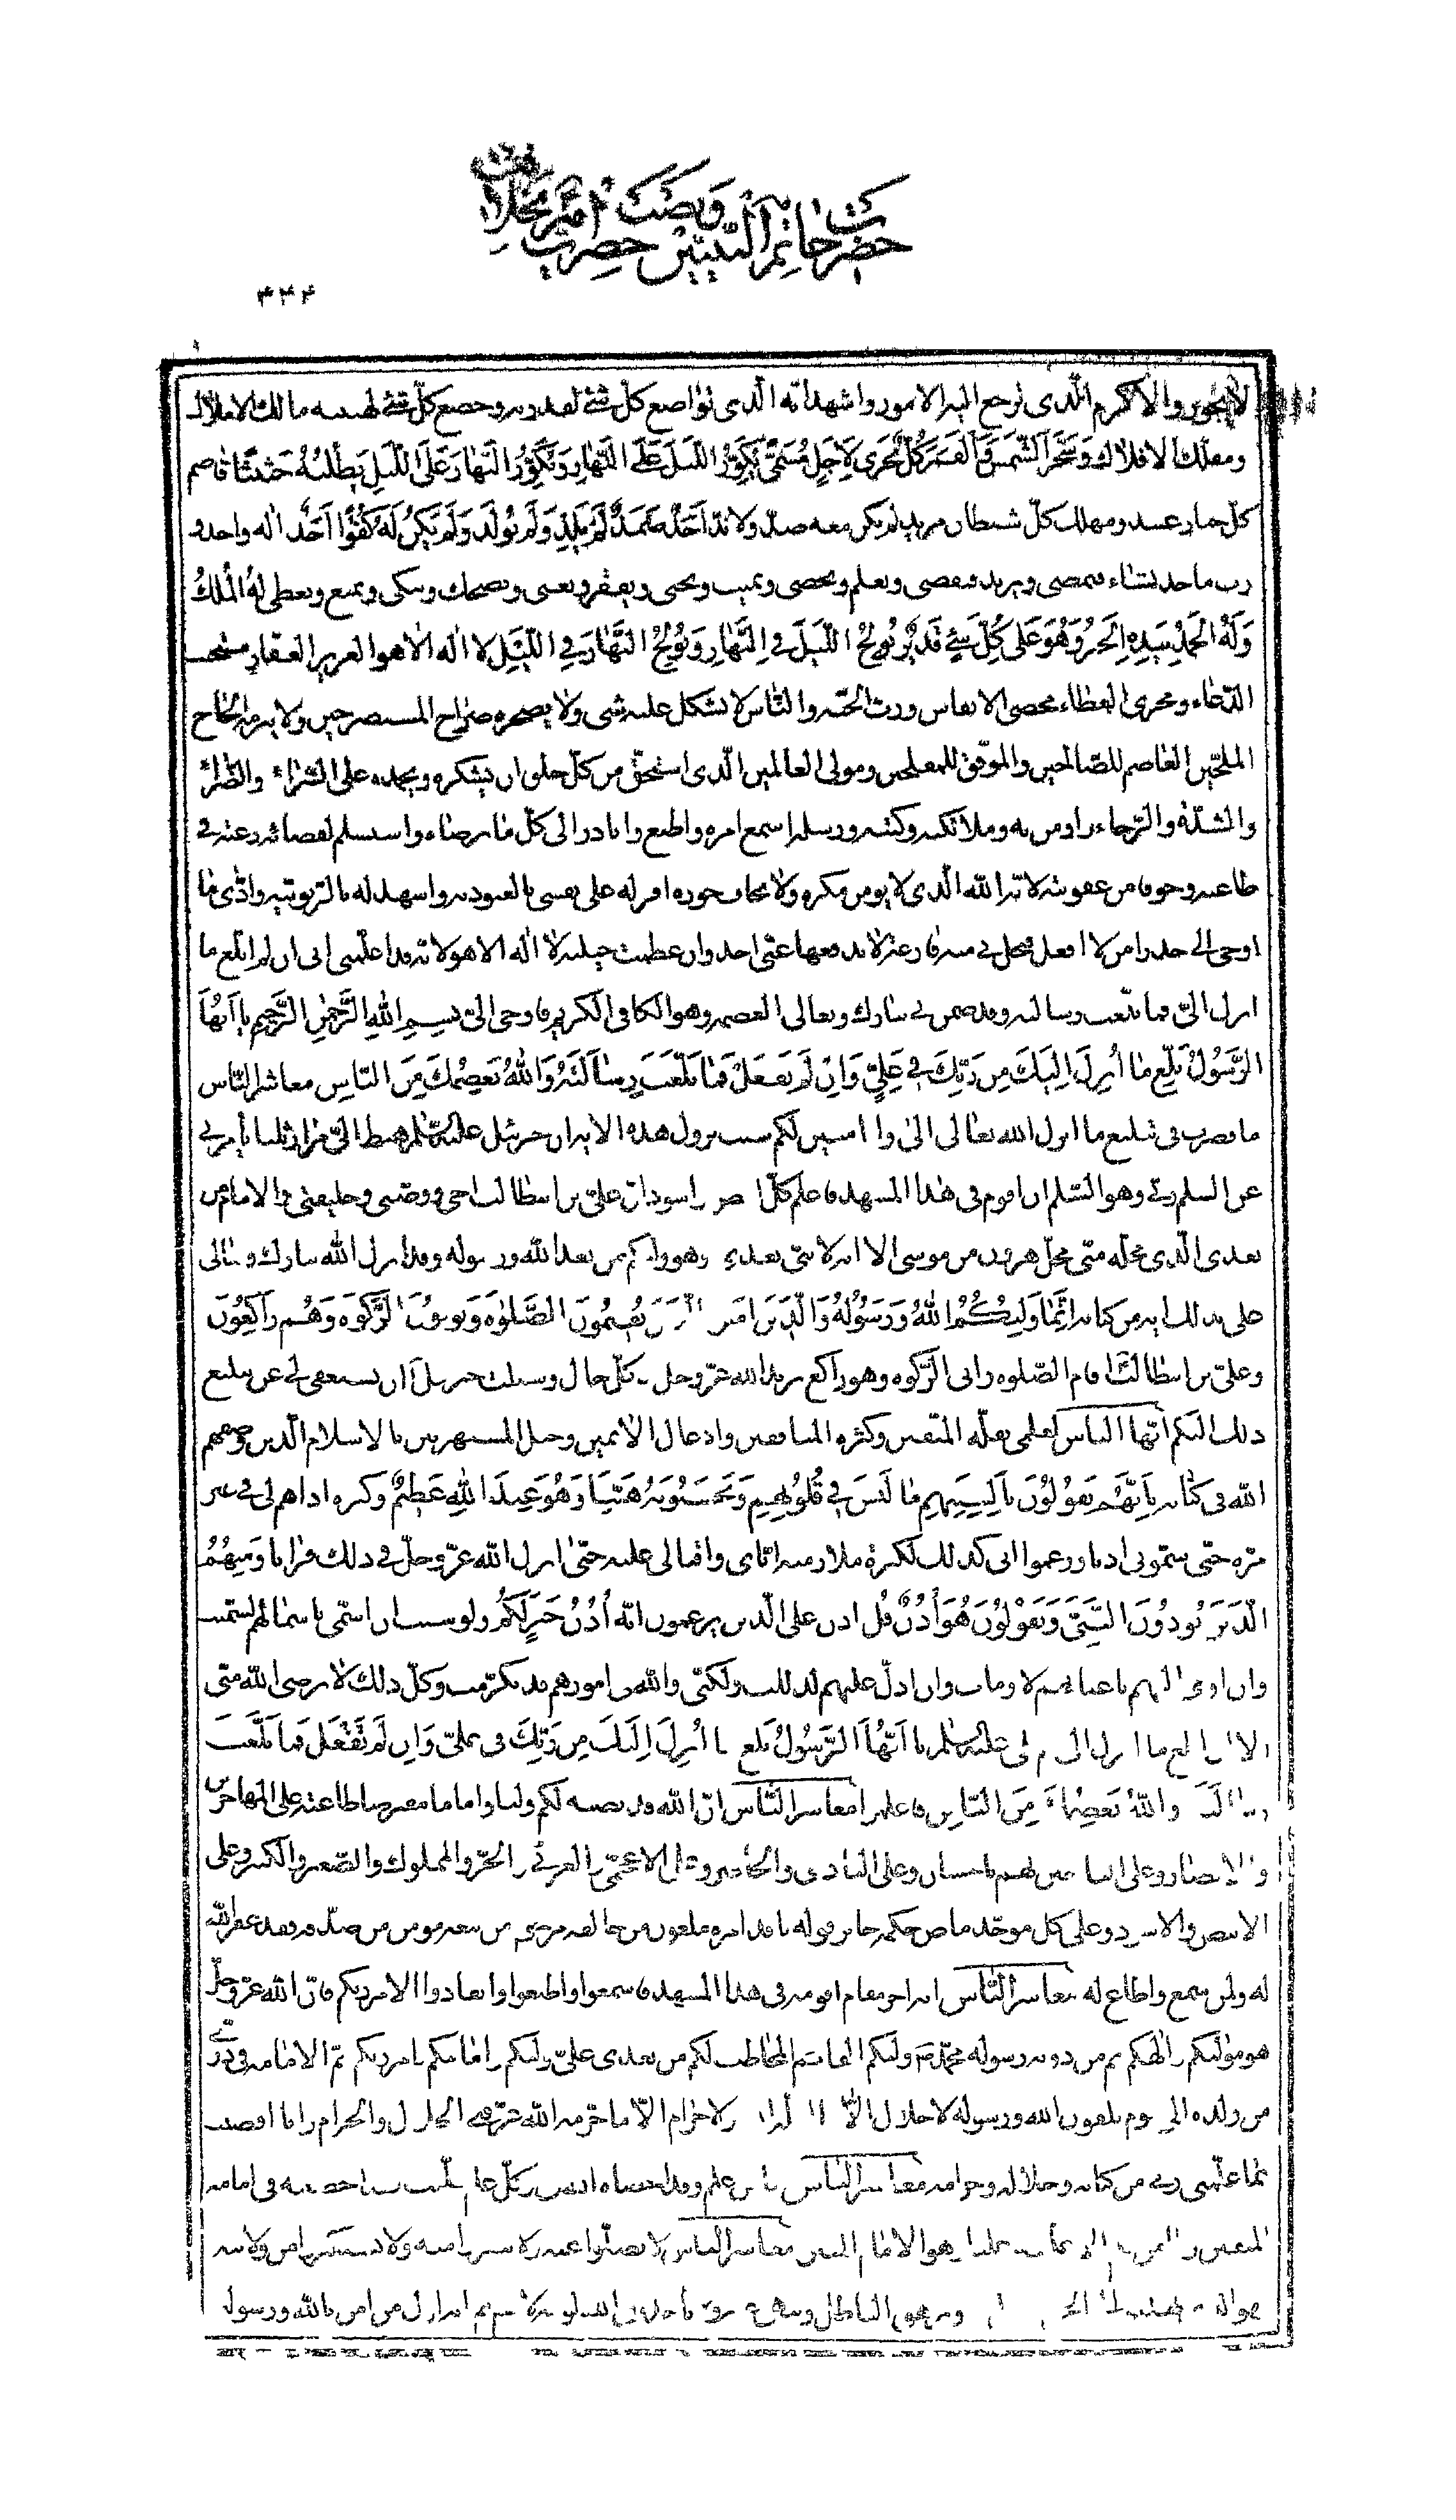 حضرت خاتم النبیین
وبضت حضرت
۳۴۴
لا یجور والاکرم الّذی ترجع الیه الامور واشهد انّه الّذی تواضع کلّ شئ لقدرته وخضع کلّ شئ لهیبته مالک الاملاک
ومفلک الافلاک وَسَخَّرَ الشَّمسَ وَالقَمَرَ کُلٌّ یَجری لِاَجَلٍ مُسَمًّی یُکَوِّرُ اللَّیلَ عَلَی النَّهارِ وَیُکَوِّرُ النَّهارَ عَلَی اللَّیلِ یَطلُبُهُ حَثیثًا قاصم
کلّ جبار عنید ومهلک کلّ شیطان مرید لم یکن معه ضدّ ولا ندّ اَحَدٌ صَمَدٌ لَم یَلِد وَلَم یُولَد وَلَم یَکُن لَهُ کُفُوًا اَحَدٌ اله واحد و
ربّ ماجد یشاء فیمضی ویرید فیقضی ویعلم ویحصی ویمیت ویحیی ویفقر ویغنی ویضحک ویبکی ویمنع ویعطی لَهُ المُلکُ
وَلَهُ الحَمدُ بِیَدِهِ الخَیرُ وَهُوَ عَلی کُلِّ شَیءٍ قَدیرٌ یُولِجُ اللَّیلَ فِی النَّهارِ وَیُولِجُ النَّهارَ فِی اللَّیلِ لا اله الّا هو العزیز الغفّار مستجیب
الدّعاء ومجزی العطاء محصی الانفاس وربّ الجنّه والنّاس لا یشکل علیه شی ولا یضجره صراخ المستصرخین ولا یبرمه الحاح
الملحّین العاصم للصّالحین والموفّق للمفلحین ومولی العالمین الّذی استحقّ من کلّ خلق ان یشکره ویحمده علی السّرّاء والضّرّاء
والشدّة والرّخاء اومن به وملائکته وکتبه ورسله اسمع امره واطیع وابادر الی کلّ ما یرضاه واستسلم لقضائه رغبة فی
طاعته وخوفا من عقوبته لانّه الله الّذی لا یومن مکره ولا یخاف جوره اقرّ له علی نفسی بالعبودیه واشهد له بالرّبوبیّه واؤدّی ما
اوحی الیّ حذرا من لا افعل فتحلّ بی منه قارعة لا یدفعها عنّی احد وان عظمت حیلته لا اله الّا هو لانّه قد اعلمنی انی ان لم ابلّغ ما
انزل الیّ فما بلّغت رسالته وقد ضمن لی تبارک وتعالی العصمه وهو الکافی الکریم فاوحی الیّ بِسمِ اللهِ الرَّحمنِ الرَّحیم یا اَیُّهَا
الرَّسُولُ بَلِّغ ما اُنزِلَ اِلَیکَ مِن رَبِّکَ فِی عَلِیٍّ وَاِن لَم تَفعَل فَما بَلَّغتَ رِسالَتَهُ وَاللهُ یَعصِمُکَ مِنَ النّاسِ معاشر النّاس
ما قصرت فی تبلیغ ما انزل الله تعالی الیّ وانا مبیّن لکم سبب نزول هذه الایه ان جبرئیل علیه السّلم هبط الیّ مرارا ثلثا یأمرنی
عن السلم ربّی وهو السّلم ان اقوم فی هذا المشهد فاعلم کلّ ابیض واسود انّ علیّ بن ابیطالب اخی ووصیّی وخلیفتی والامام من
بعدی الّذی محلّه منّی محلّ هرون من موسی الّا انه لا نبیّ بعدی وهو ولیّکم من بعد الله ورسوله وقد انزل الله تبارک وتعالی
علی بذلک ایه من کتابه اِنَّما وَلِیُّکُمُ اللهُ وَرَسُولُهُ وَالَّذینَ امَنُوا الَّذینَ یُقیمُونَ الصَّلوةَ وَیُوتُونَ الزَّکوةَ وَهُم راکِعُونَ
وعلیّ بن ابیطالب اقام الصّلوه واتی الزّکوه وهو راکع یرید الله عزّ وجلّ فی کلّ حال وسئلت جبریل ان یستعفی لی عن تبلیغ
ذلک الیکم ایّها الناس لعلمی بقلّه المتّقین وکثره المنافقین وادغال الاثمین وحیل المستهزئین بالاسلام الّذین وصفهم
الله فی کتابه بِاَنَّهُم یَقُولُونَ بِاَلسِنَتِهِم ما لَیسَ فی قُلُوبِهِم وَیَحسَبُونَهُ هَیِّنًا وَهُوَ عِندَ اللهِ عَظیمٌ وکثره اذاهم لی فی غیر
مرّه حتّی سمّونی اذنا وزعموا انی کذلک لکثرة ملازمته ایّای واقبالی علیه حتّی انزل الله عزّ وجلّ فی ذلک قرانا وَمِنهُمُ
الَّذینَ یُؤذُونَ النَّبِیَّ وَیَقُولُونَ هُوَ اُذُنٌ قُل اذن علی الّذین یزعمون انّه اُذُنُ خَیرٍ لَکُم ولو شئت ان اسمّی باسمائهم لسمّیت
وان اومی الیهم باعیانهم لاومات وان ادلّ علیهم لدللت ولکنّی والله فی امورهم قد تکرّمت وکلّ ذلک لا یرضی الله منّی
الا ان ابلغ ما انزل الیّ یا اَیُّهَا الرَّسُولُ بَلِّغ ما اُنزِلَ اِلَیکَ مِن رَبِّکَ فی علیّ وَاِن لَم تَفعَل فَما بَلَّغتَ
رسالته وَاللهُ یَعصِمُکَ مِنَ النّاسِ فاعلموا معاشر النّاس انّ الله قد نصبه لکم ولیّا واماما مفترضا طاعته علی المهاجرین
والانصار وعلی التابعین لهم باحسان وعلی البادی والحاضر وعلی الاعجمیّ والعربیّ والحرّ والمملوک والصّغیر والکبیر وعلی
الابیض والاسود وعلی کلّ موحّد ماض حکمه جایز قوله نافذ امره ملعون من خالفه مرحوم من تبعه مومن من صدّقه فقد غفر الله
له ولمن سمع واطاع له معاشر النّاس انه اخر مقام اقومه فی هذا المشهد فاسمعوا واطیعوا وانقادوا الامر ربّکم فانّ الله عزّ وجلّ
هو مولیکم والهکم ثم من دونه رسوله محمّد ولیّکم القائم المخاطب لکم من بعدی علیّ ولیّکم وامامکم بامر ربّکم ثمّ الامامه فی ذرّیّتی
من ولده الی یوم تلقون الله ورسوله لا حلال الّا ما احلّه الله ولا حرام الّا ما حرّمه الله عرّفنی الحلال والحرام وانا افضیت
بما علّمنی ربّی من کتابه وحلاله وحرامه معاشر النّاس ما من علم وقد احصاه الله فیّ وکلّ علم علّمت فقد احصیته فی امام
المتّقین هو الامام المبین معاشر الناس لا تضلّوا عنه ولا تنفروا منه ولا تستنکفوا من ولایته
ویزهق الباطل وینهی عنه انه اوّل من امن بالله ورسوله